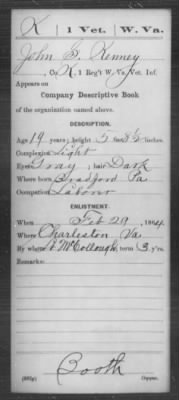 K | 1 Vet. | W. Va.
John S. Kenney
, Co. K, 1 Reg't W. Va. Vet. Inf.
Appears on
Company Descriptive Book
of the organization named above.
DESCRIPTION.
Age 19 years; height 5 feet inches.
Complexion Light
Eyes Gray; hair Dark
Where born Bradford Pa
Occupation Laborer
ENLISTMENT.
When Feb 29, 1864.
Where Charleston Va
By whom McCollough; term 3 y'rs.
Remarks:
Booth
Copyist.